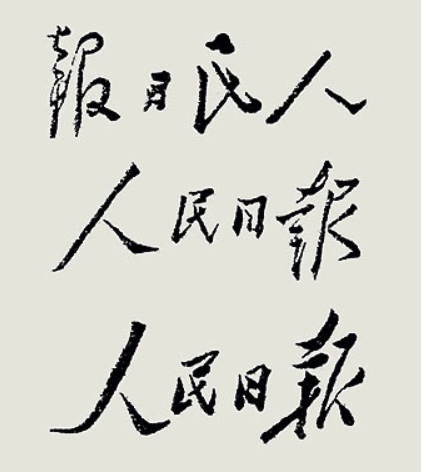 人民日報
人民日報
人民日報